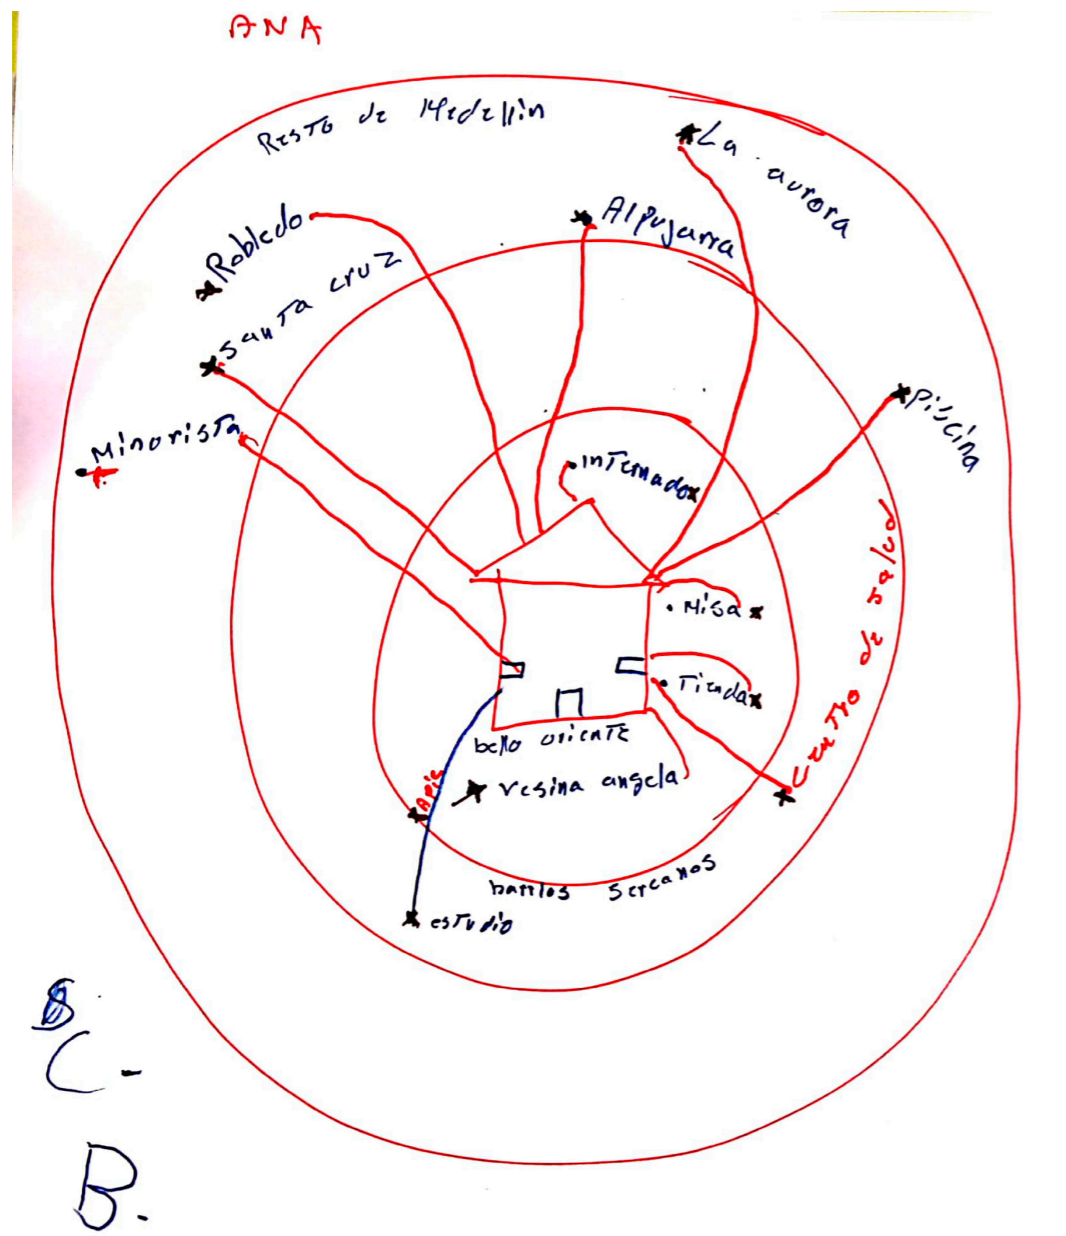 ANA
Resto de Medellin
La aurora
Alpujarra
Robledo
santa cruz
Minorista
Piscina
internado
Misa
Tienda
Centro de salud
bello oriente
vesina angela
Apie
barrios sercanos
estudio
C-
B.